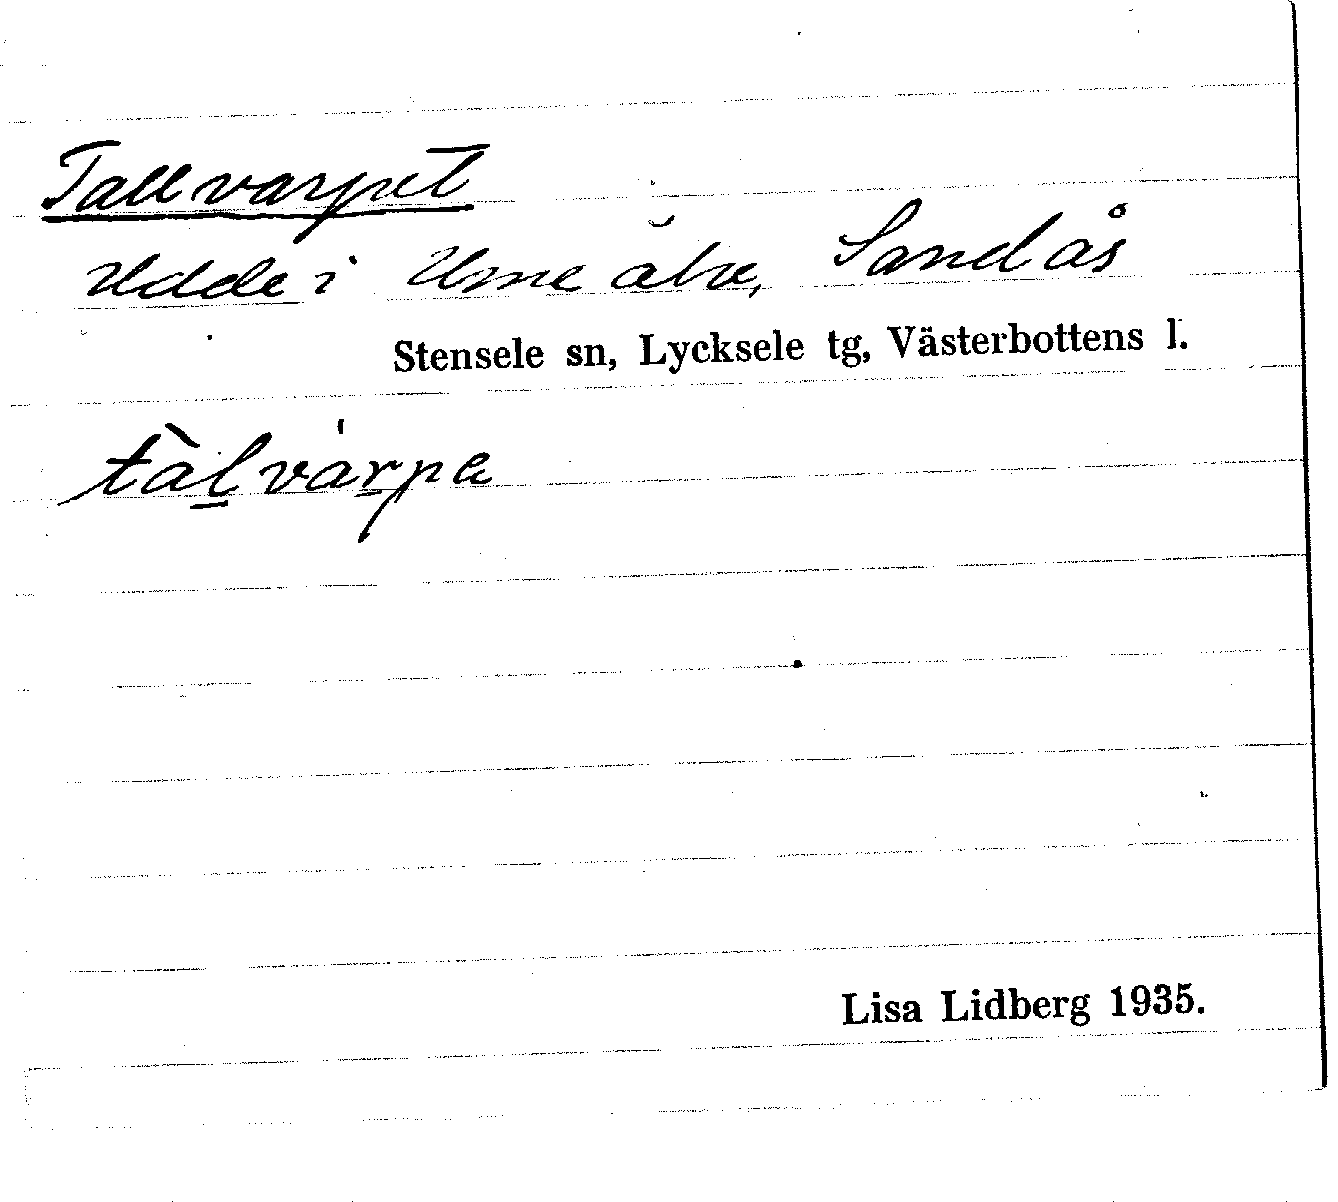 Tallvarpet
Udde i Ume älv, Sandås
Stensele sn, Lycksele tg, Västerbottens l.
tàl̠vár̠pa
Lisa Lidberg 1935.